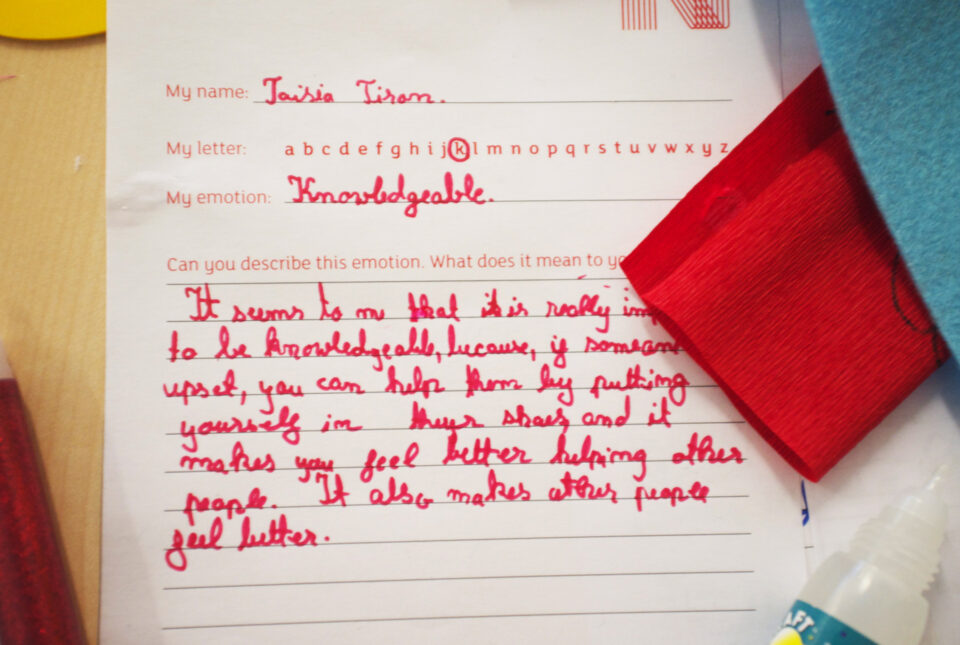 N
My name: Taisia Tiron.
My letter: a b c d e f g h i j k l m n o p q r s t u v w x y z
My emotion: Knowledgeable.
Can you describe this emotion. What does it mean to yo
It seems to m that it is really im
to be knowledgeable, because, if someone
upset, you can help them by putting
yourself in their shoes and it
makes you feel better helping other
people. It also makes other people
feel better.
AFT